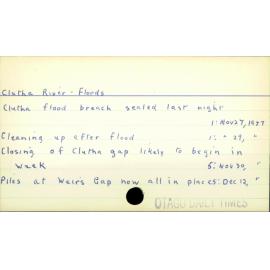 Clutha River - Floods
Clutha flood breach sealed last night
1: Nov 27, 1957
Cleaning up after flood 1: " 29, "
Closing of Clutha gap likely to begin in
week 5: Nov 30, "
Piles at Weir's Gap now all in place 5: Dec 12, "
OTAGO DAILY TIMES